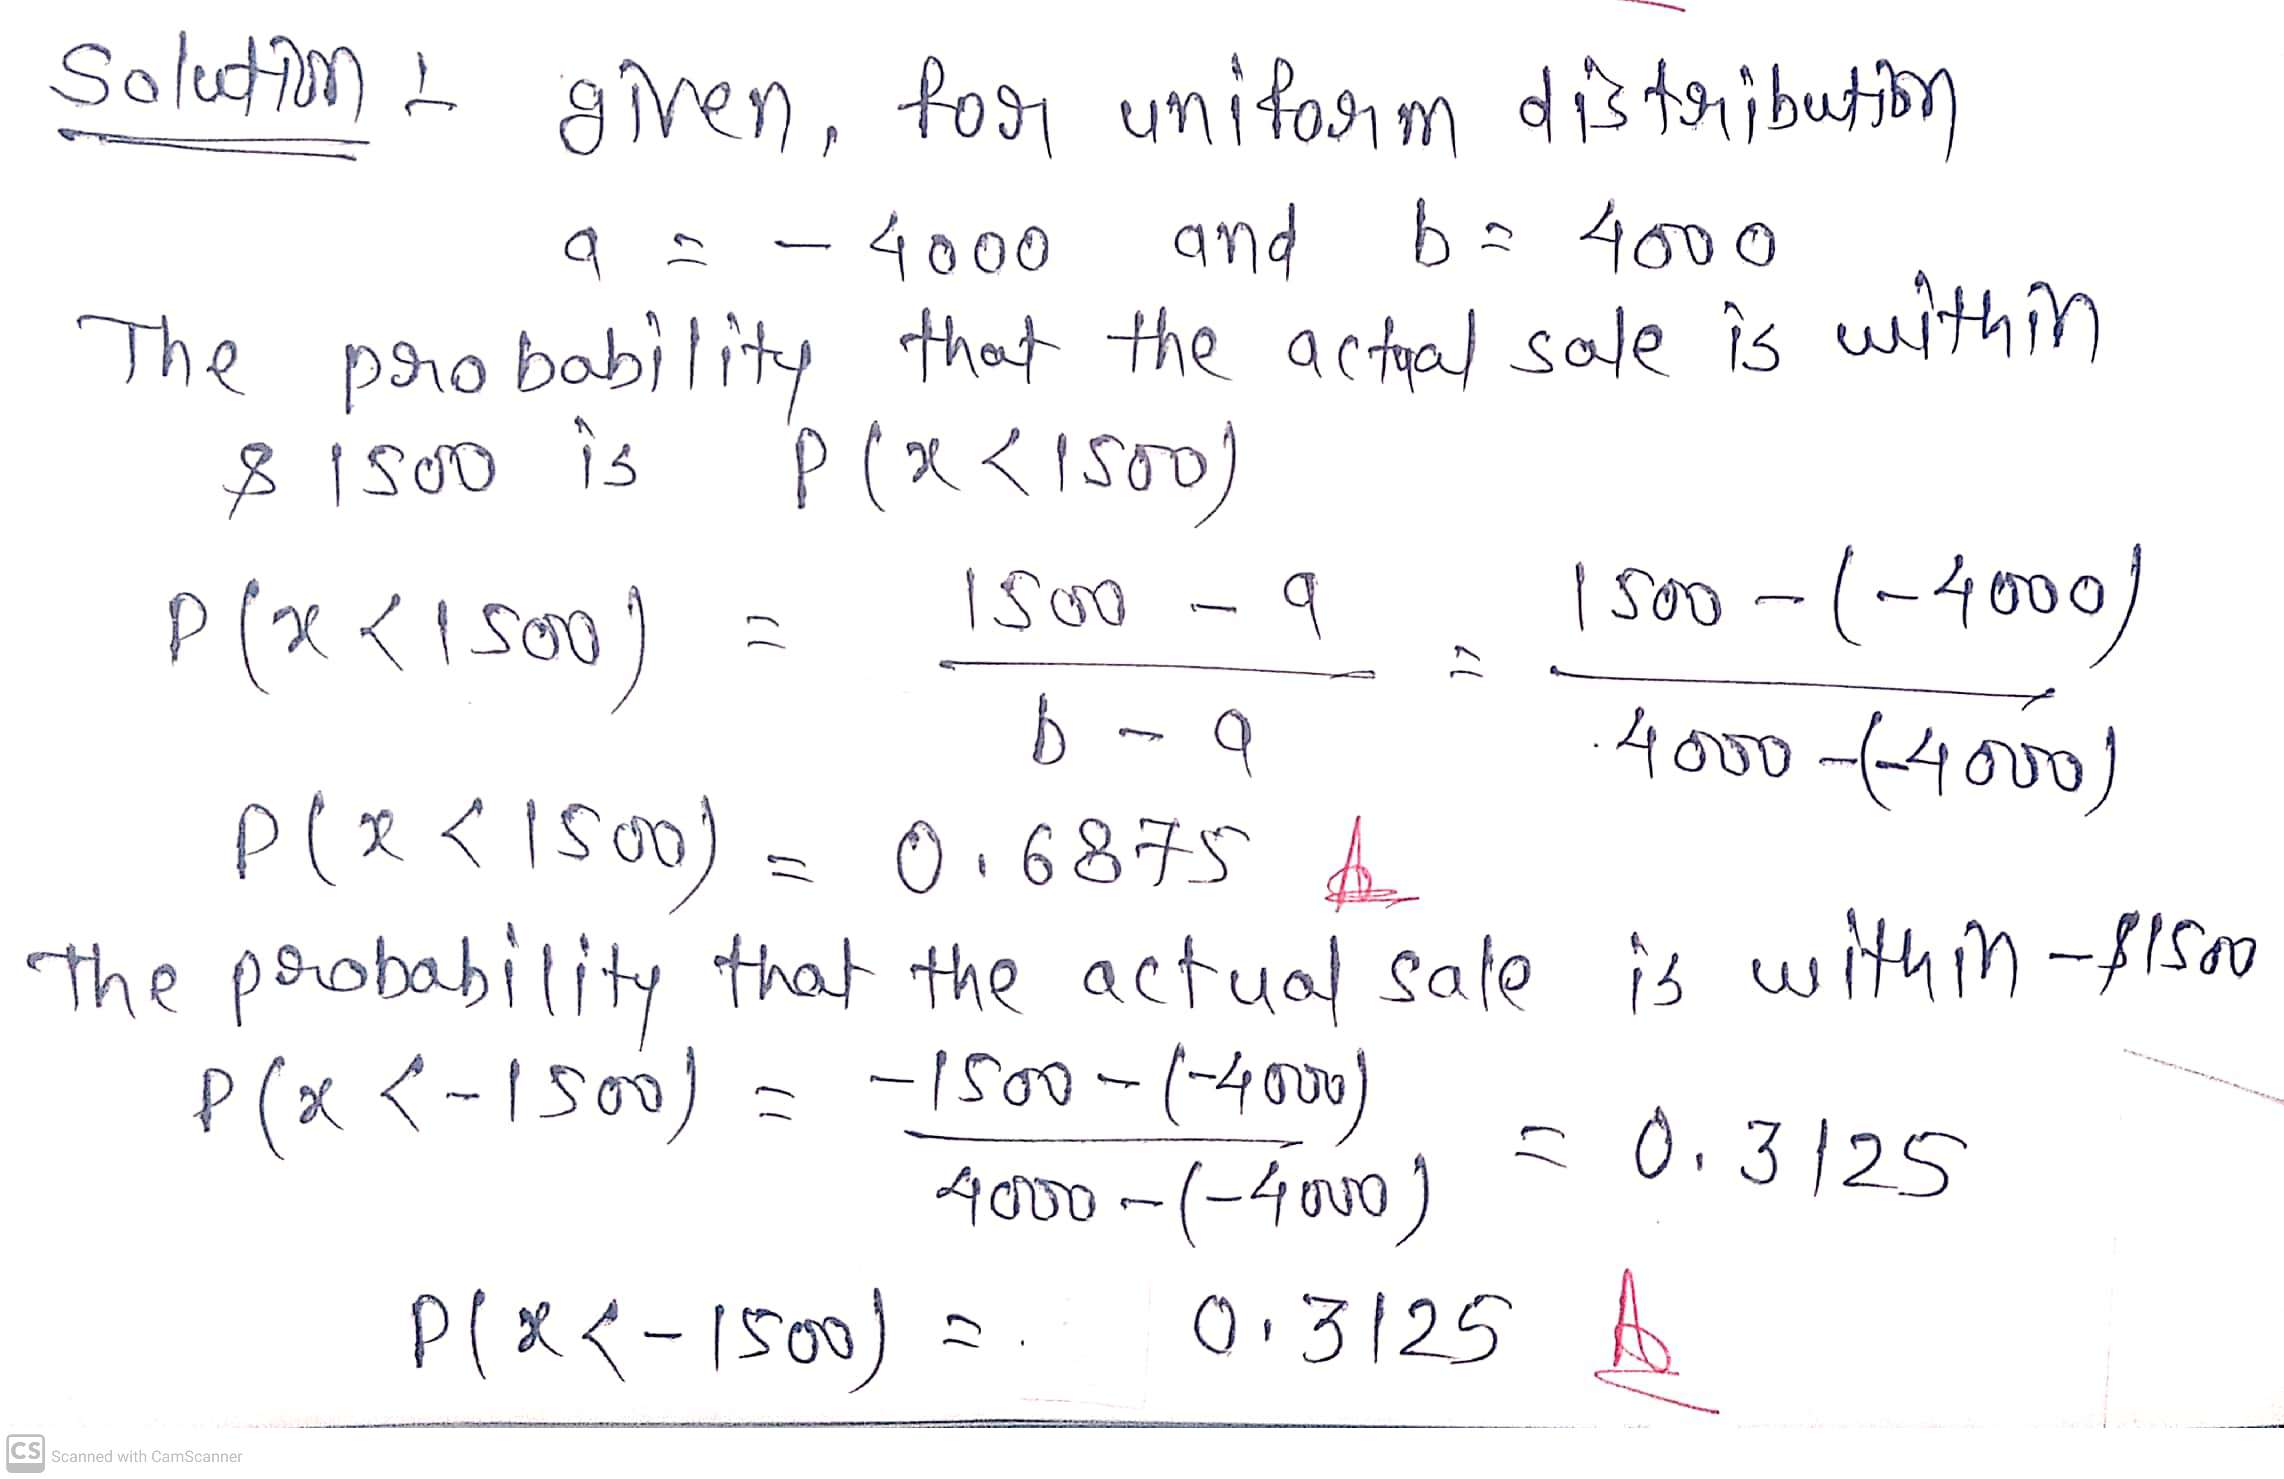 Solution :- given, for uniform distribution
a = - 4000 and b = 4000
The probability that the actual sale is within
$ 1500 is P(x < 1500)
P(x < 1500) = 1500 - a / b - a = 1500 - (-4000) / 4000 - (-4000)
P(x < 1500) = 0.6875
The probability that the actual sale is within -$1500
P(x < -1500) = -1500 - (-4000) / 4000 - (-4000) = 0.3125
P(x < -1500) = 0.3125
CS Scanned with CamScanner